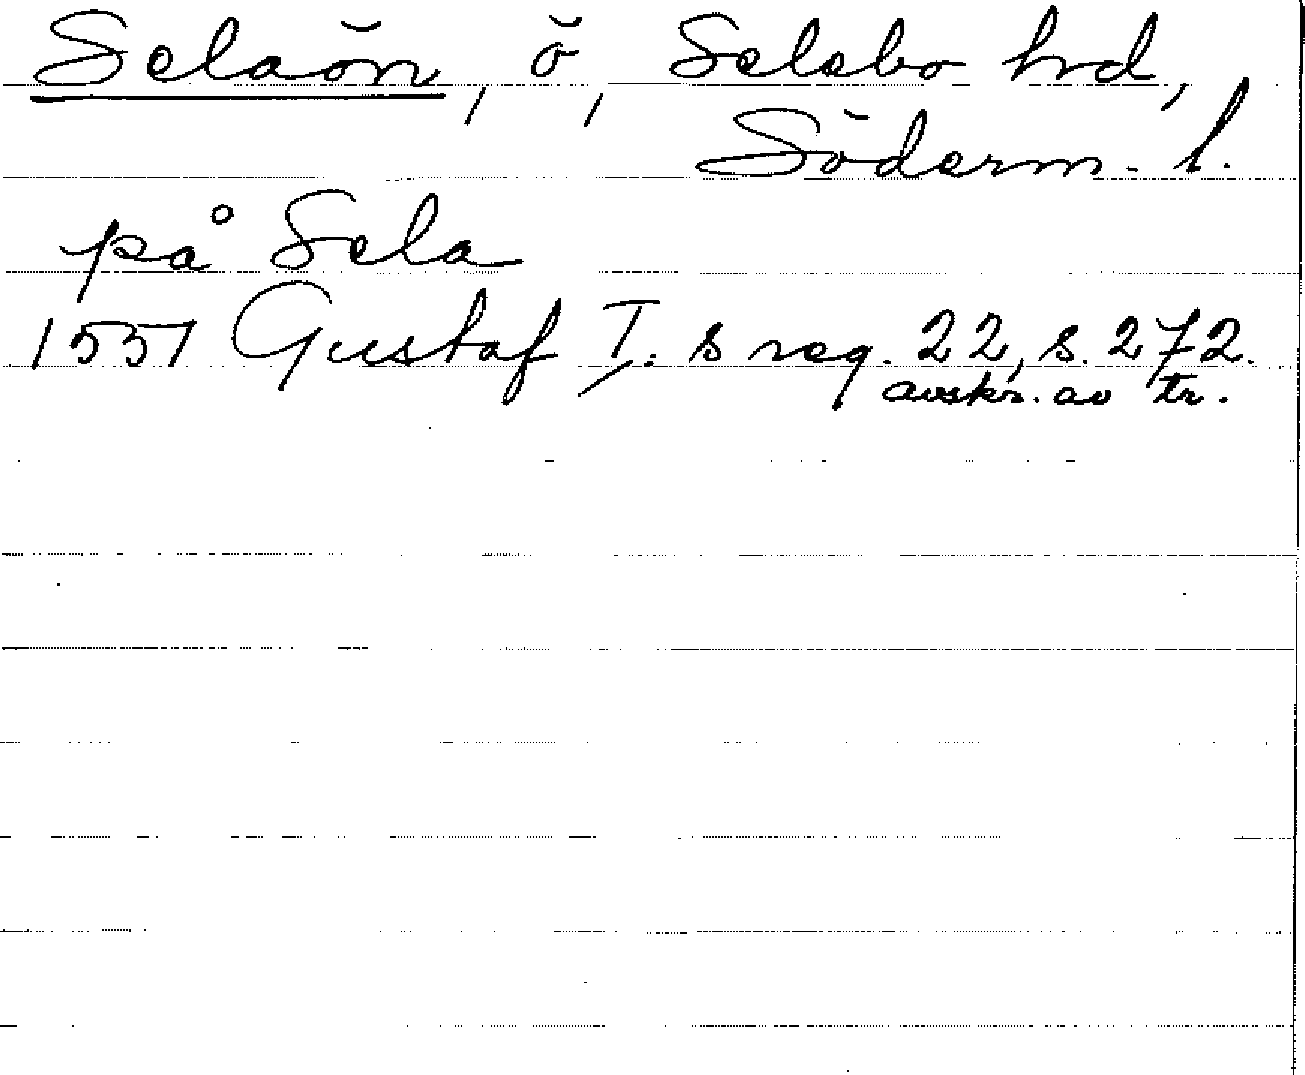 Selaön, ö, Selebo hrd,
Söderm. l.
på Sela
1551 Gustaf I: s reg. 22, s. 272.
avskr. av tr.